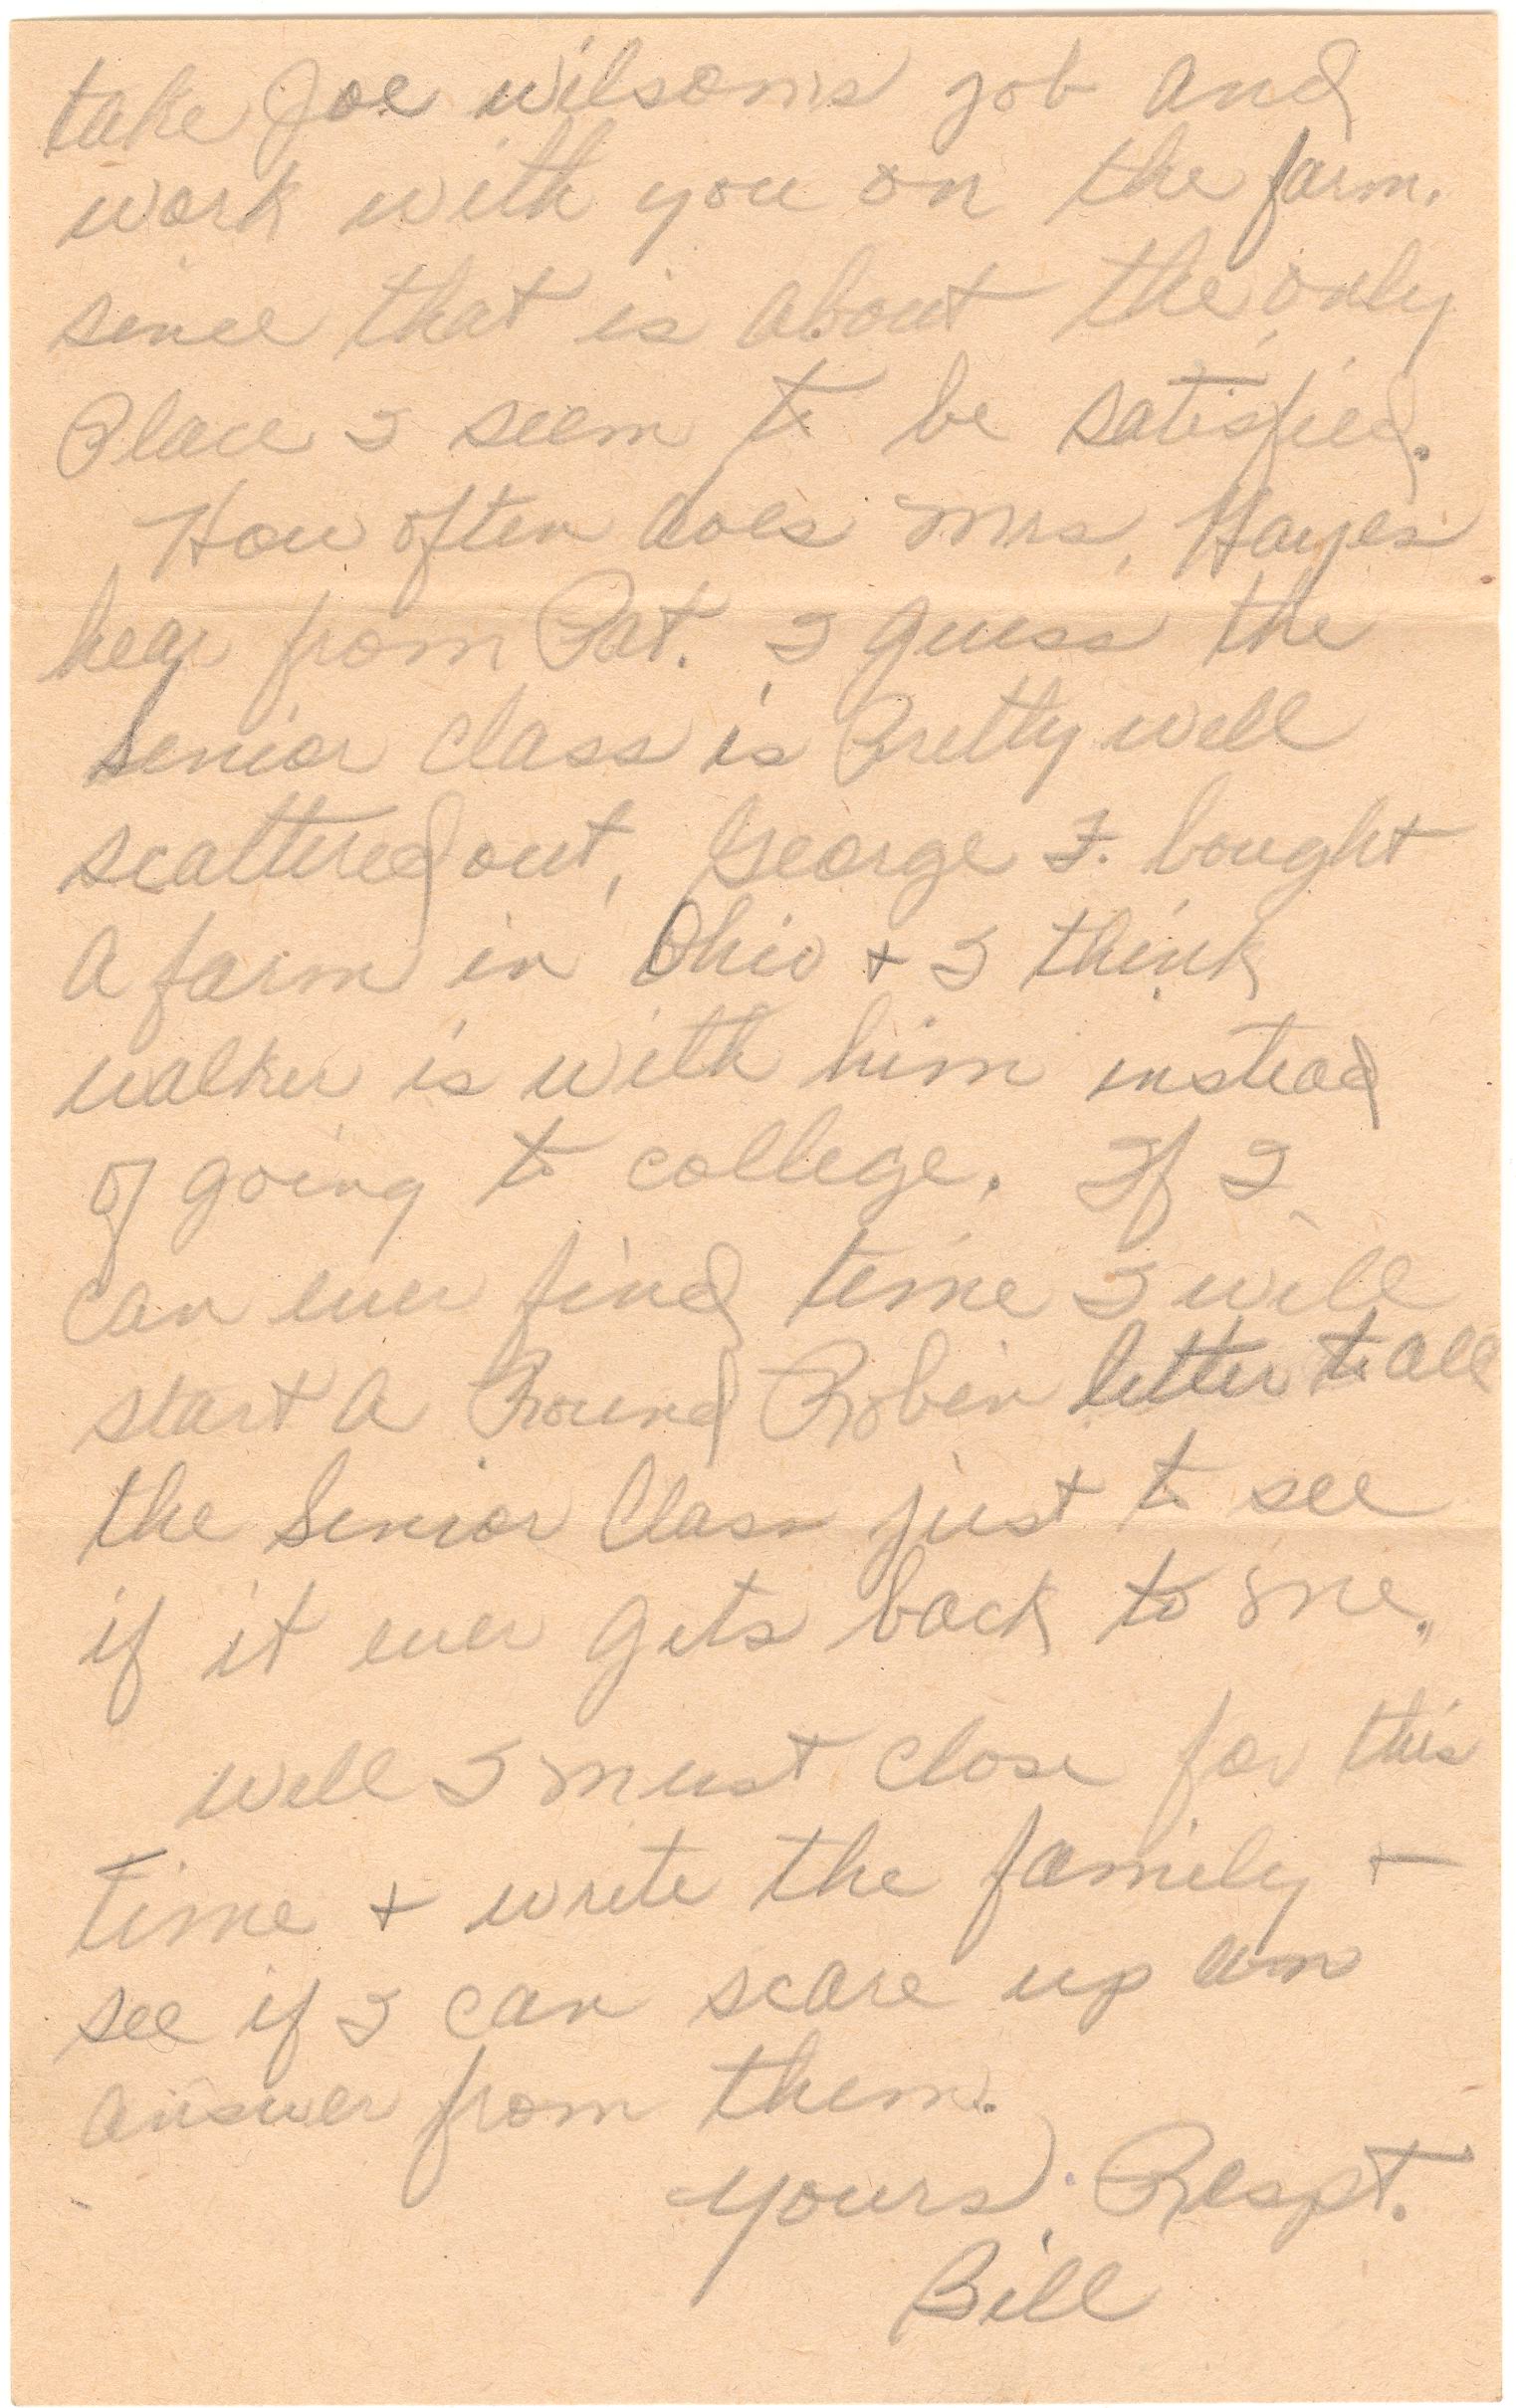 take Joe wilsons job and
work with you on the farm.
since that is about the only
Place I seem to be satisfied.
How often does mrs. Hayes
hear from Pat. I guess the
Senior class is Pretty well
scattered out, George F. bought
a farm in Ohio + I think
walker is with him instead
of going to college. If I
can ever find time I will
start a Round Robin letter to all
the Senior Class just to see
if it ever gets back to me.
well I must close for this
time + write the family +
see if I can scare up an
answer from them.
yours, Respt.
Bill